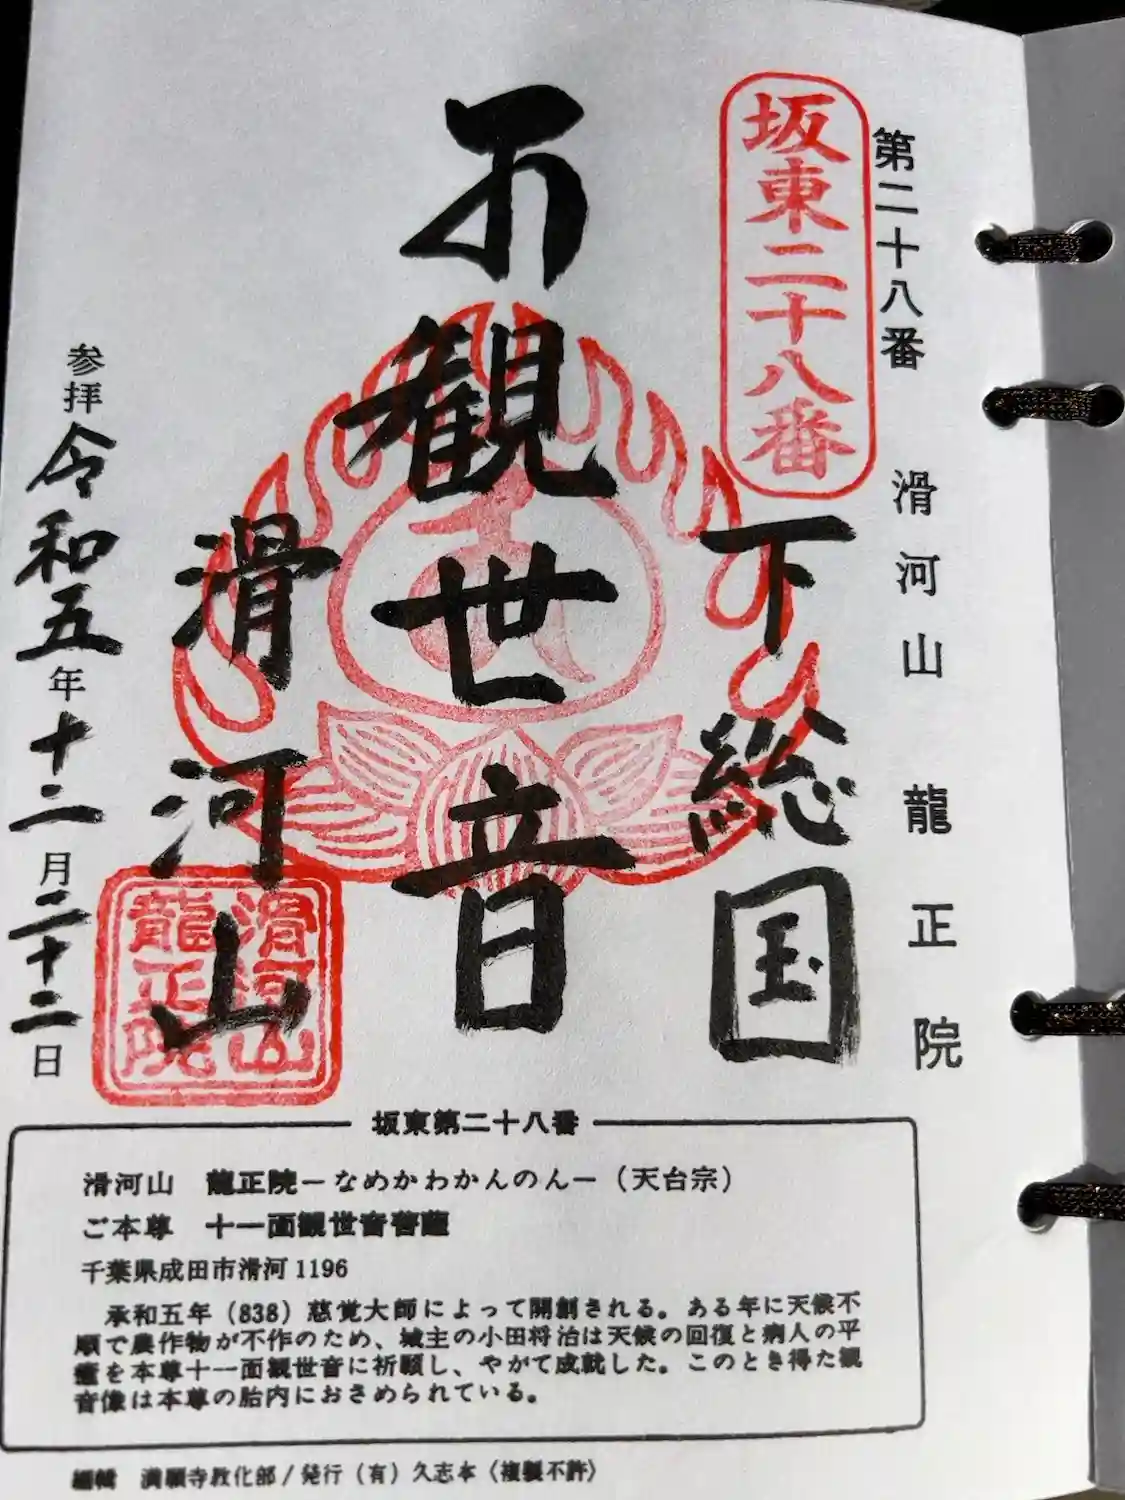 第二十八番 滑河山 龍正院
坂東二十八番
下総国
観世音
滑河山
滑河山
龍正院
参拝 令和五年十二月二十二日
坂東第二十八番
滑河山 龍正院－なめかわかんのん－（天台宗）
ご本尊 十一面観世音菩薩
千葉県成田市滑河1196
承和五年（838）慈覚大師によって開創される。ある年に天候不
順で農作物が不作のため、城主の小田将治は天候の回復と病人の平
癒を本尊十一面観世音に祈願し、やがて成就した。このとき得た観
音像は本尊の胎内におさめられている。
編輯 満願寺教化部/発行（有）久志本〈複製不許〉